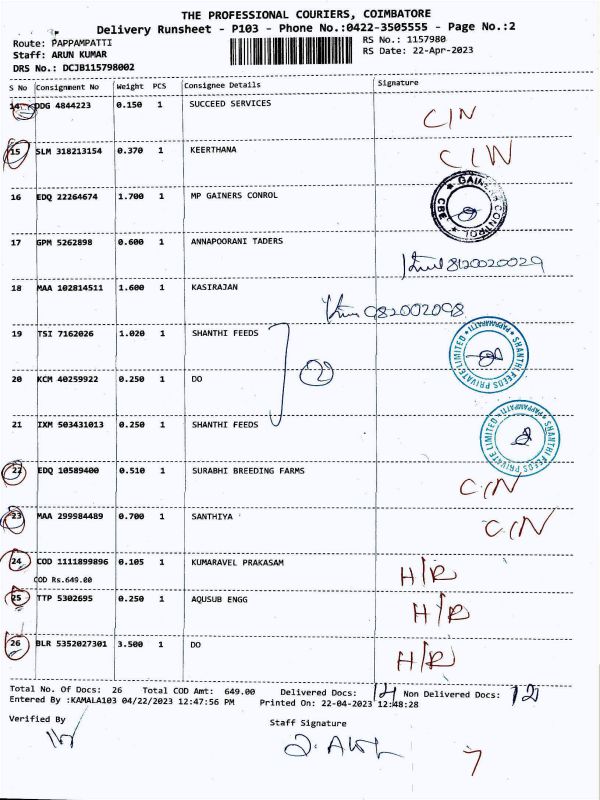 THE PROFESSIONAL COURIERS, COIMBATORE
Delivery Runsheet - P103 - Phone No.:0422-3505555 - Page No.:2
Route: PAPPAMPATTI RS No.: 1157980
Staff: ARUN KUMAR RS Date: 22-Apr-2023
DRS No.: DCJB115798002
S No Consignment No Weight PCS Consignee Details Signature
14 DDG 4844223 0.150 1 SUCCEED SERVICES CIN
15 SLM 318213154 0.370 1 KEERTHANA CIN
16 EDQ 22264674 1.700 1 MP GAINERS CONROL
17 GPM 5262898 0.600 1 ANNAPOORANI TADERS 8120020029
18 MAA 102814511 1.600 1 KASIRAJAN 982002098
19 TSI 7162026 1.020 1 SHANTHI FEEDS SHANTHI FEEDS PRIVATE LIMITED * PAPPAMPATTI *
20 KCM 40259922 0.250 1 DO
21 IXM 503431013 0.250 1 SHANTHI FEEDS SHANTHI FEEDS PRIVATE LIMITED * PAPPAMPATTI *
22 EDQ 10589400 0.510 1 SURABHI BREEDING FARMS CIN
23 MAA 299984489 0.700 1 SANTHIYA CIN
24 COD 1111899896 0.105 1 KUMARAVEL PRAKASAM H/R
COD Rs.649.00
25 TTP 5302695 0.250 1 AQUSUB ENGG H/R
26 BLR 5352027301 3.500 1 DO H/R
Total No. Of Docs: 26 Total COD Amt: 649.00 Delivered Docs: 14 Non Delivered Docs: 12
Entered By :KAMALA103 04/22/2023 12:47:56 PM Printed On: 22-04-2023 12:48:28
Verified By Staff Signature
7